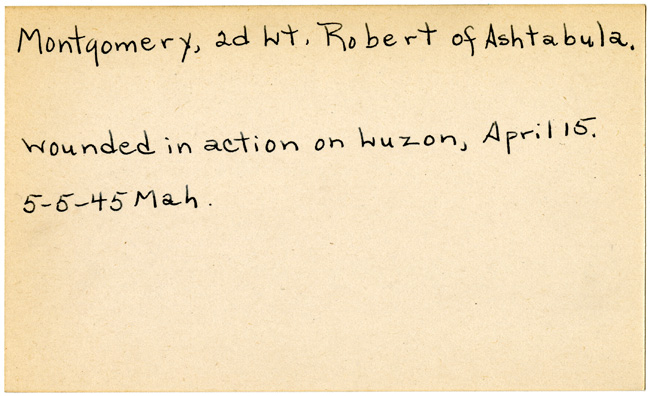 Montgomery, 2d Lt. Robert of Ashtabula.
wounded in action on Luzon, April 15.
5-5-45 Mah.